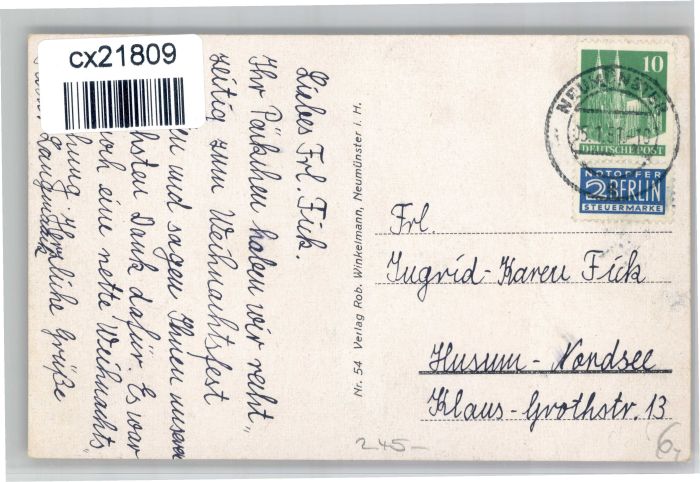 cx21809
Liebes Frl. Fick.
Ihr Päckchen haben wir recht„
zeitig zum Weihnachtsfest
und sagen Ihnen unseren
Dank dafür. Es war
noch eine nette Weihnachts„
Herzliche Grüße
Langmaack
Nr. 54 Verlag Rob. Winkelmann, Neumünster i. H.
10
DEUTSCHE POST
NEUMÜNSTER
NOTOPFER
2 BERLIN
STEUERMARKE
Frl.
Ingrid-Karen Fick
Husum-Nordsee
Klaus-Grothstr. 13
245-
6,